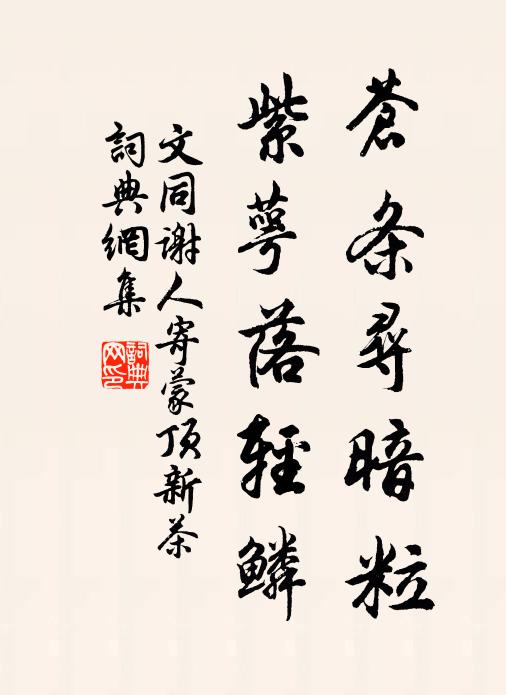 蒼条尋暗粒
紫萼落輕鱗
文同谢人寄蒙顶新茶
詞典網集
詞典網印